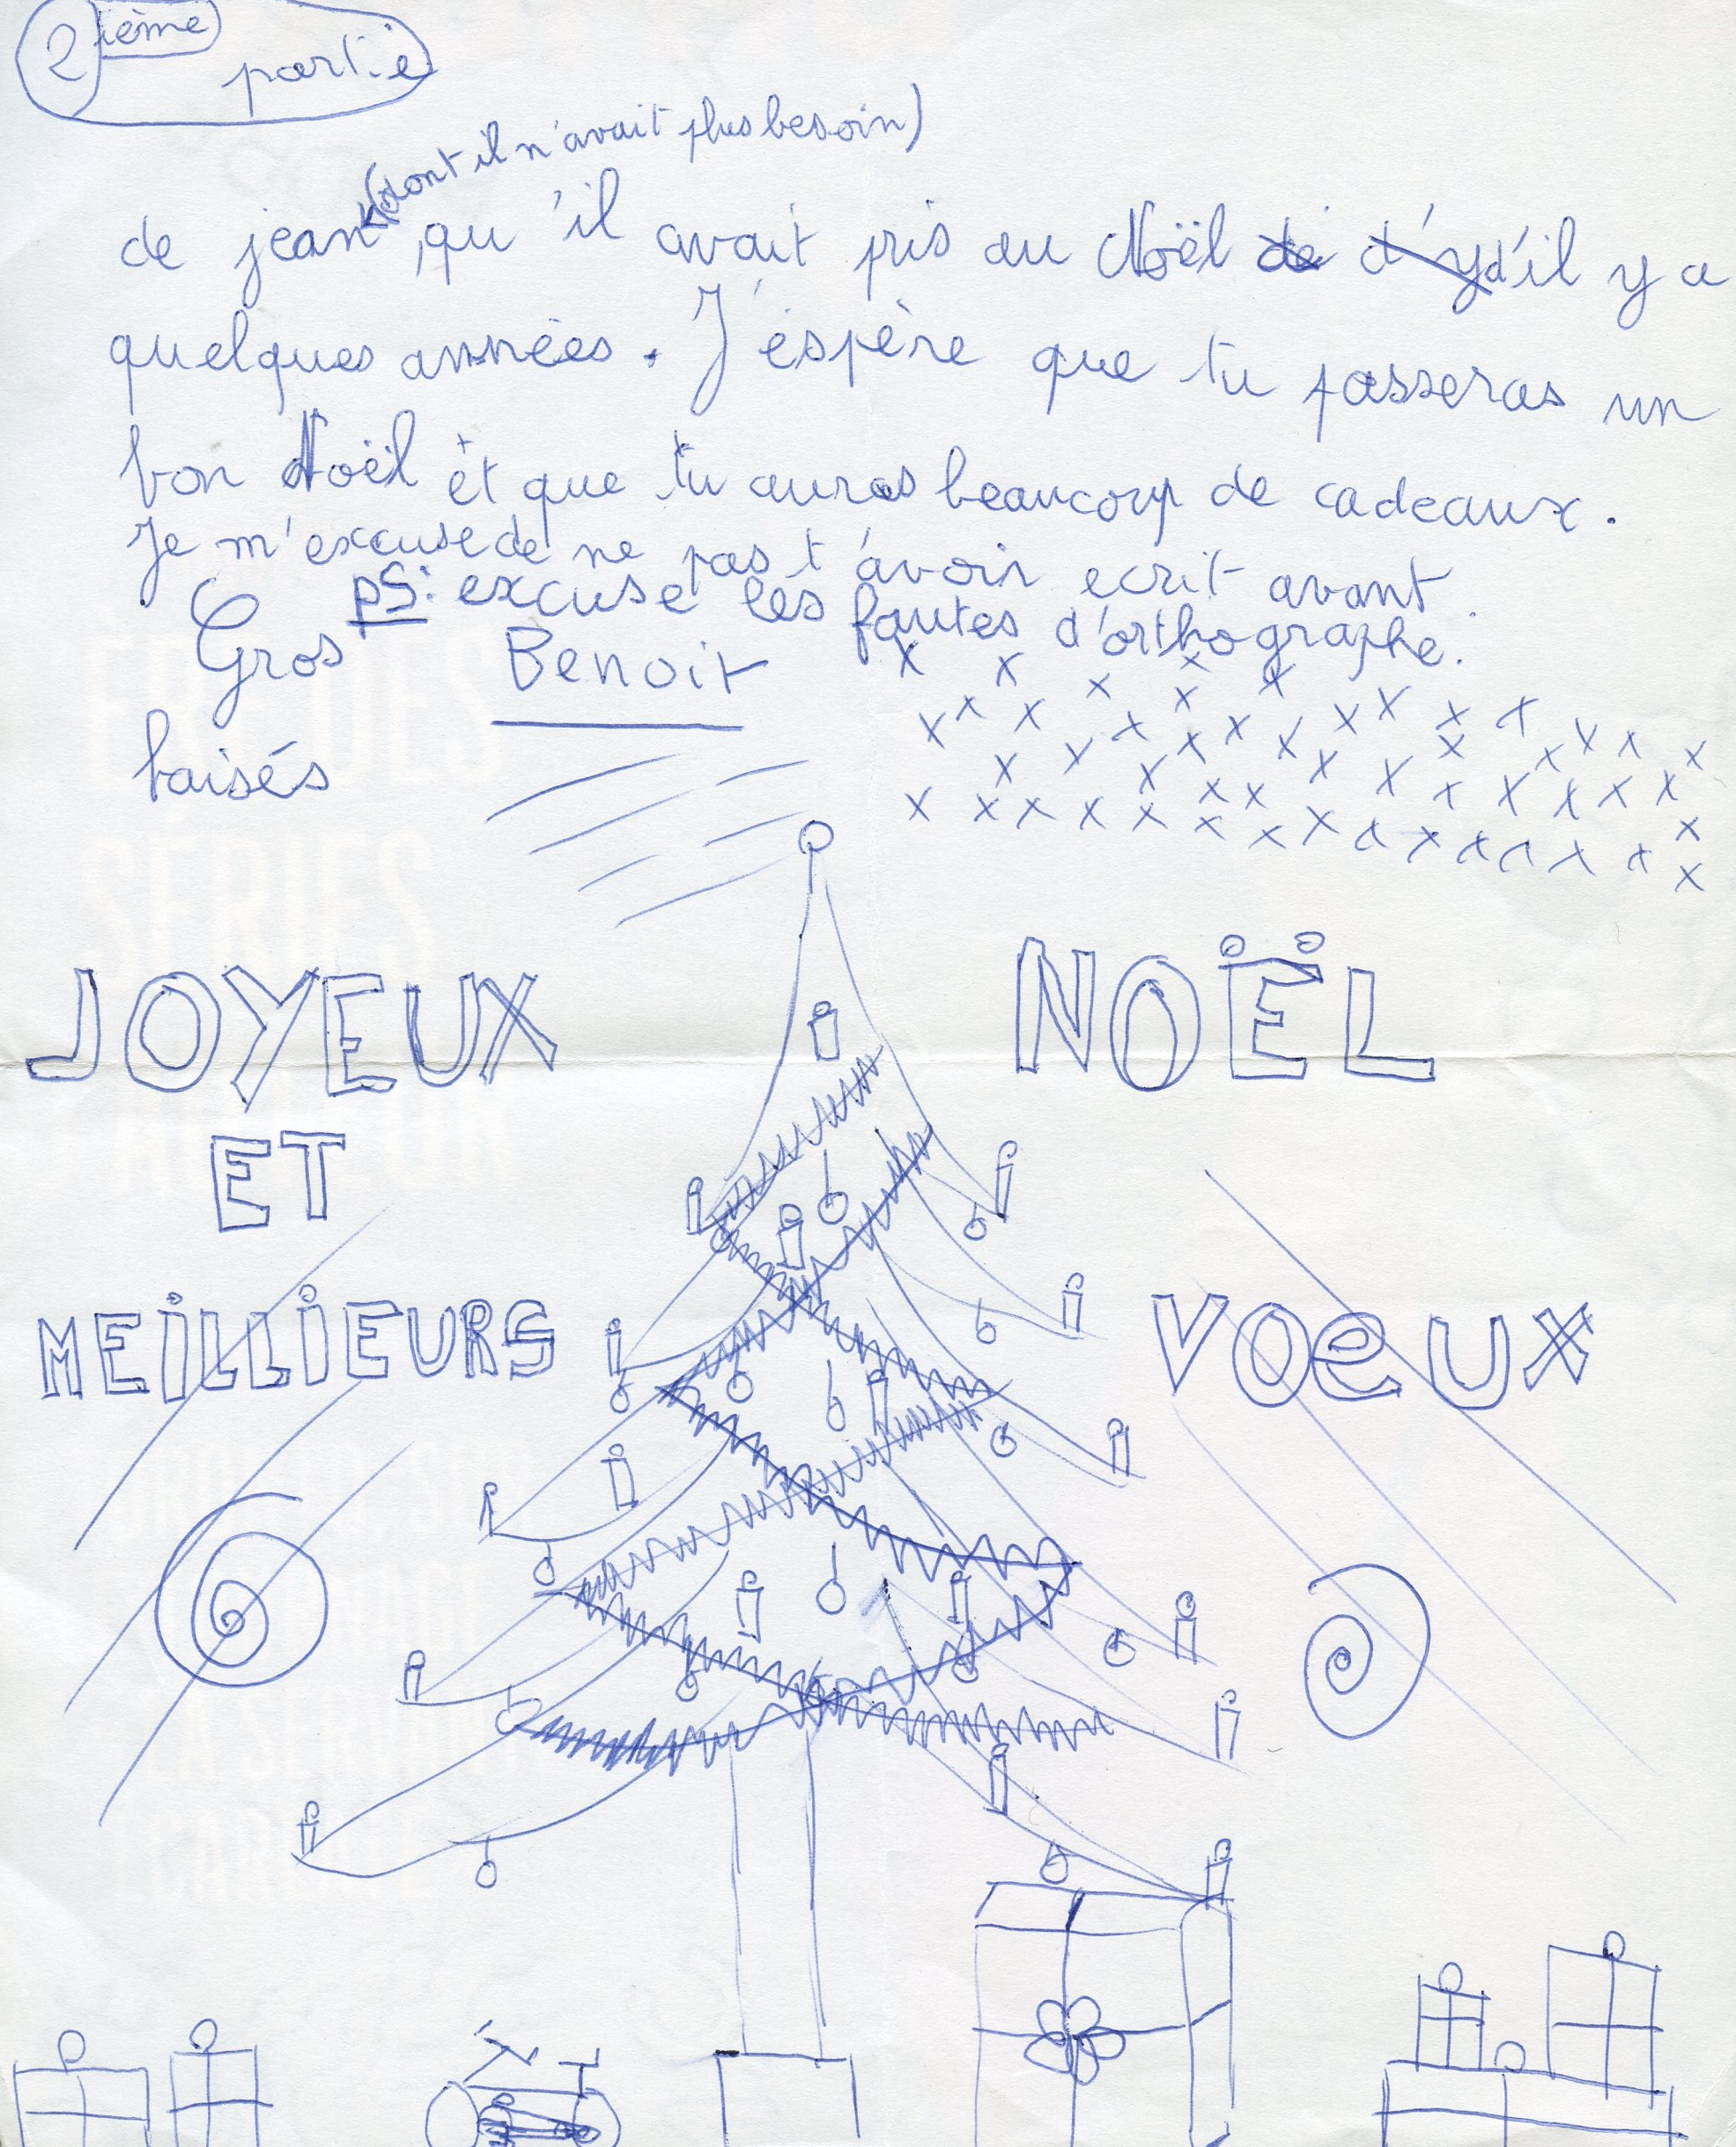 2ième partie
(dont il n'avait plus besoin)
de jean, qu'il avait pris au Noël de d'y d'il y a
quelques années. J'éspère que tu passeras un
bon Noël et que tu auras beaucoup de cadeaux.
Je m'excuse de ne pas t'avoir ecrit avant.
ps: excuse les fautes d'orthographe.
Gros Benoit
baisés
x x x x x x
x x x x x x x x x x x x x x
x x x x x x x x x x x
x x x x x x x x x x x x x x x x x
JOYEUX NOËL
ET
MEiLLiEURS VOeUX